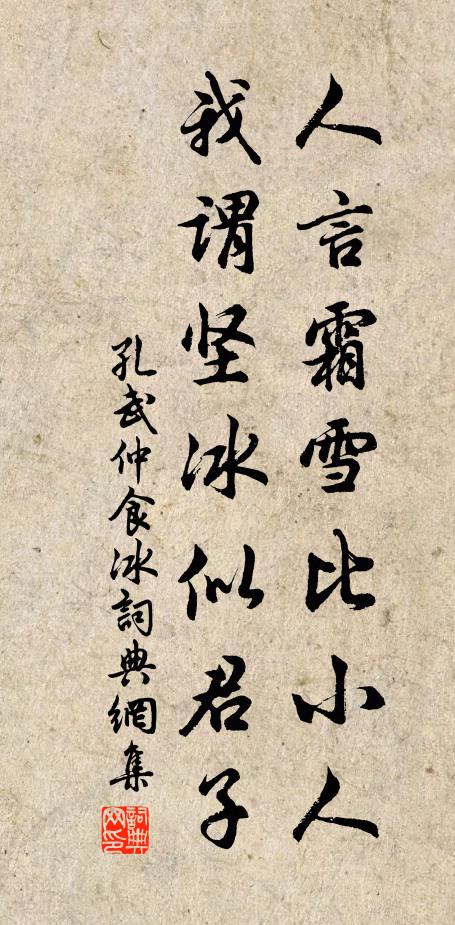 人言霜雪比小人
我谓坚冰似君子
孔武仲食冰詞典網集
詞典网印